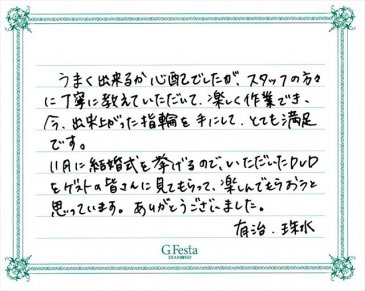 うまく出来るか心配でしたが、スタッフの方々
に丁寧に教えていただいて、楽しく作業でき、
今、出来上がった指輪を手にして、とても満足
です。
11月に結婚式を挙げるので、いただいたDVD
をゲストの皆さんに見てもらって、楽しんでもらおうと
思っています。ありがとうございました。
有治・珠水
G.Festa
DIAMOND